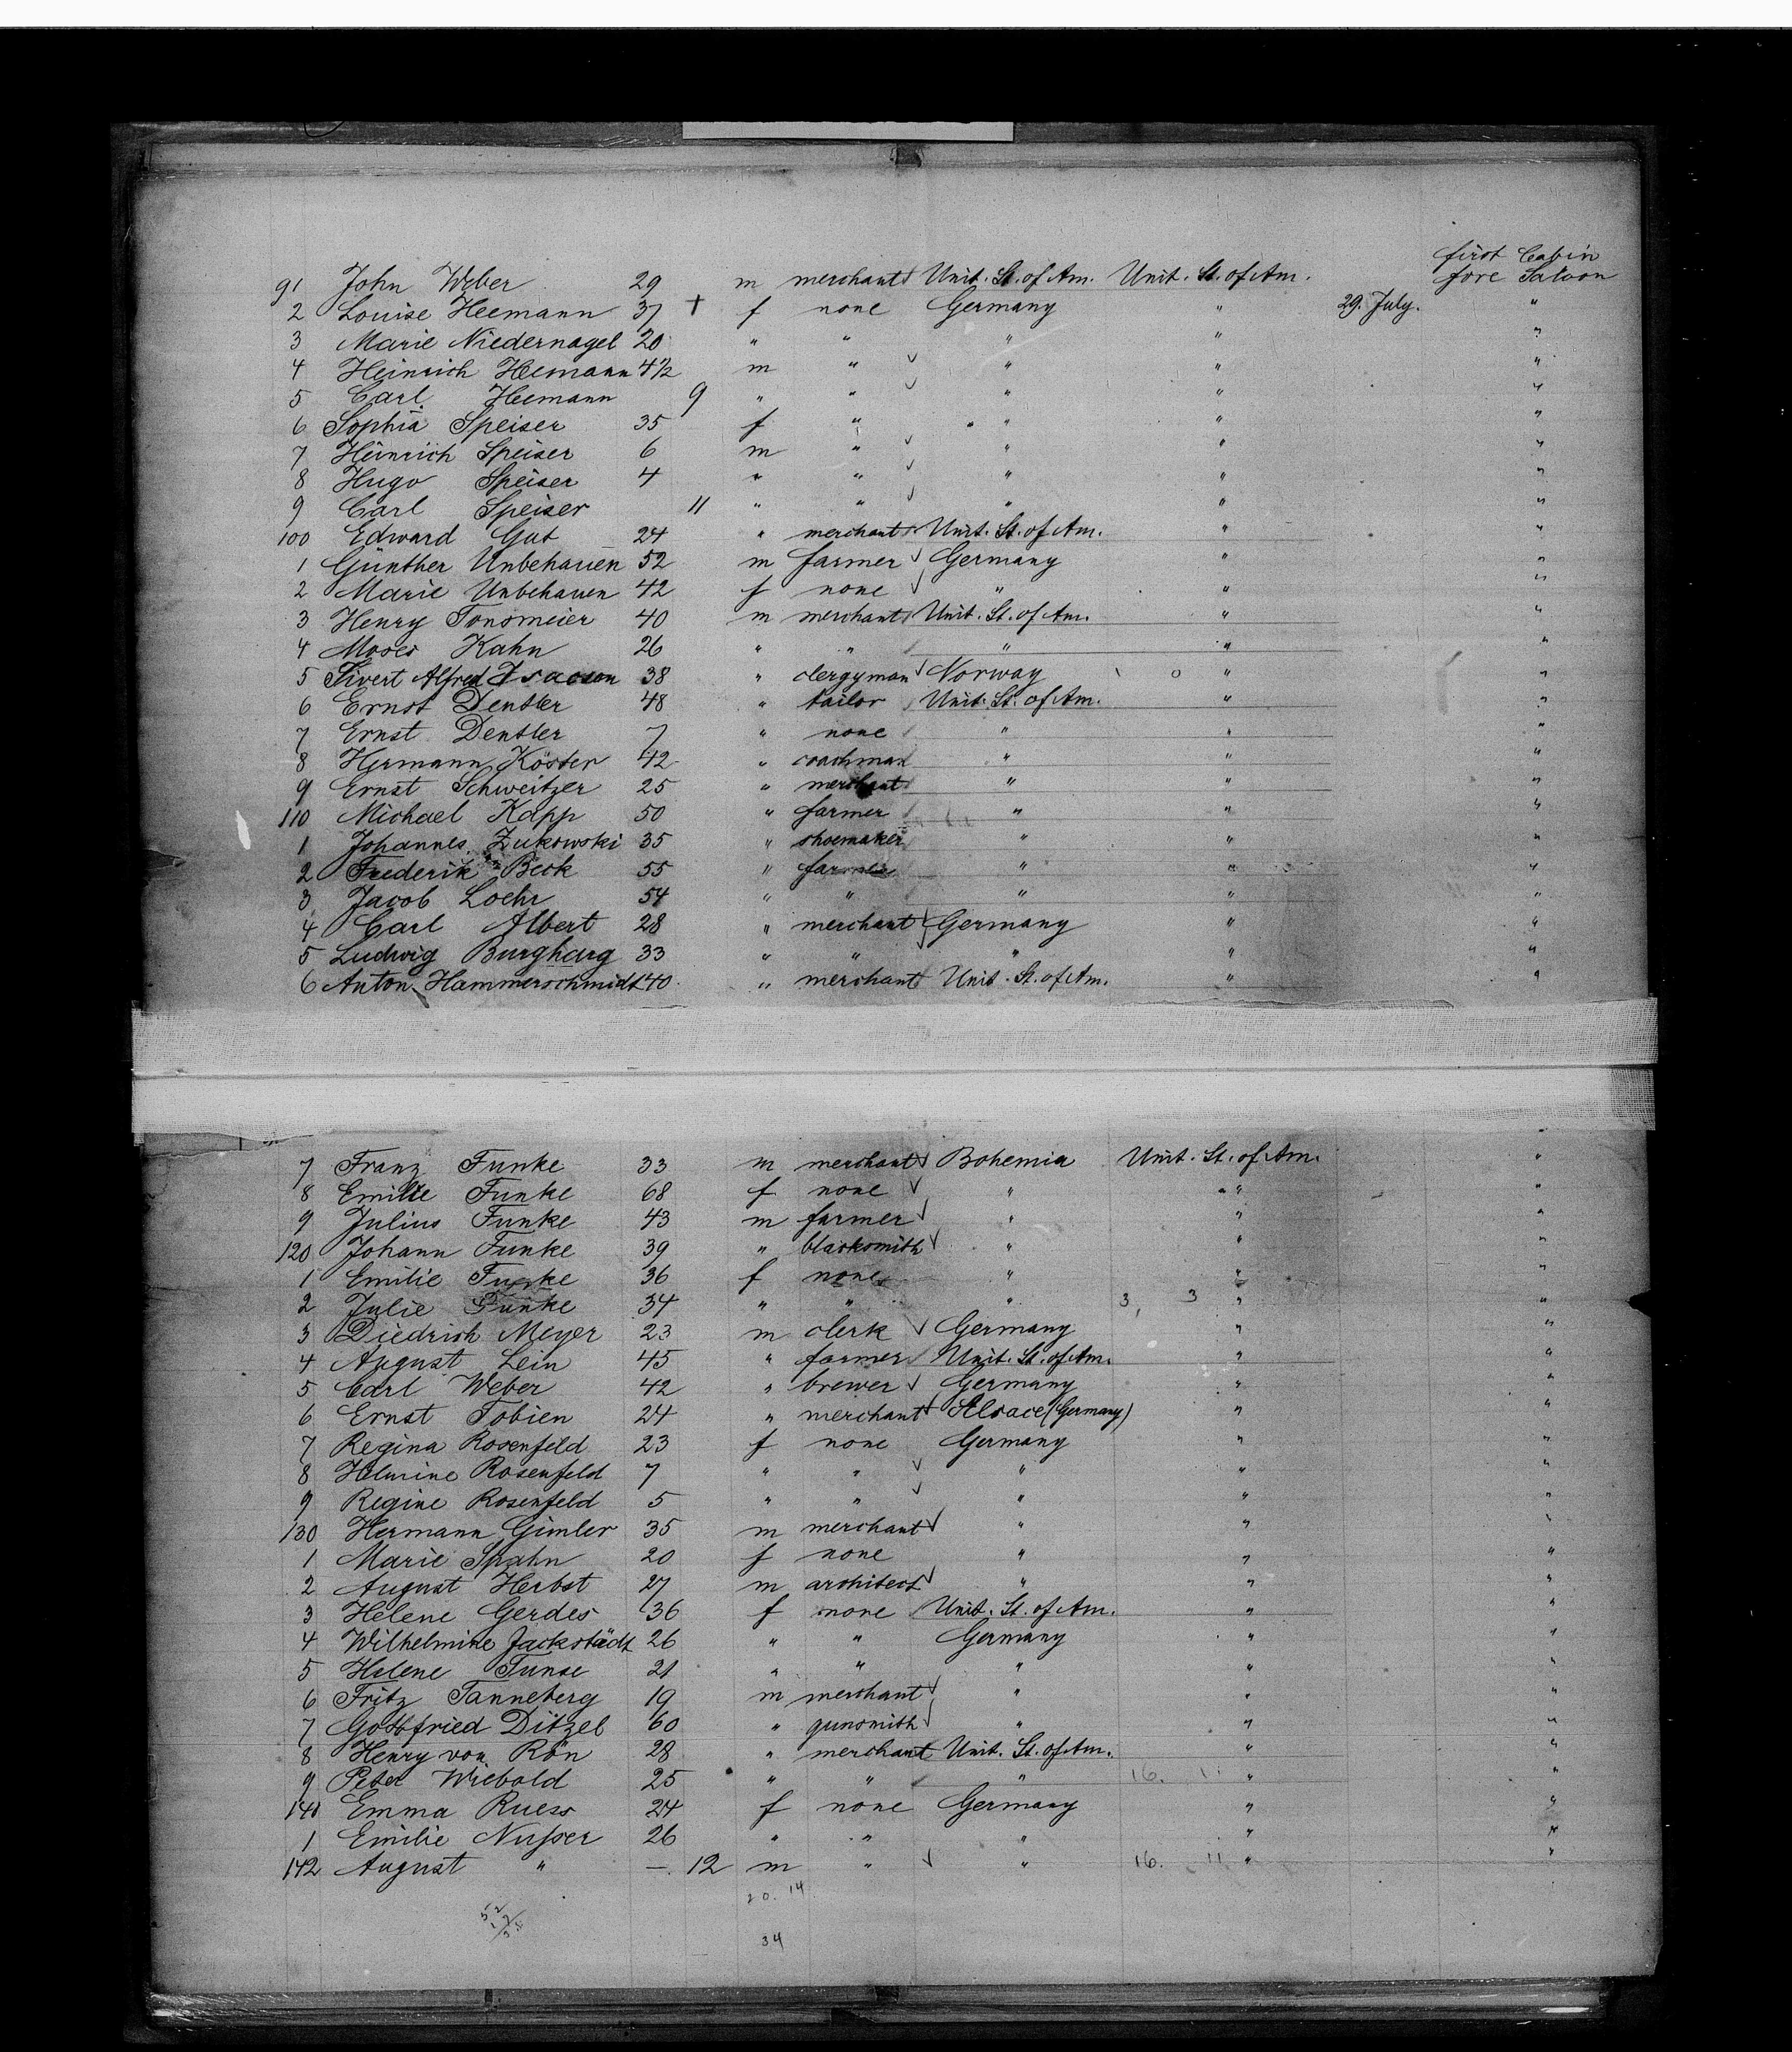 first Cabin
91 John Weber 29 m merchant Unit. St. of Am. Unit. St. of Am. fore Saloon
2 Louise Heemann 37 + f none Germany " 29. July. "
3 Marie Niedernagel 20 " " " " "
4 Heinrich Heemann 4½ m " " " "
5 Carl Heemann 9 " " " " "
6 Sophia Speiser 35 f " " " "
7 Heinrich Speiser 6 m " " " "
8 Hugo Speiser 4 " " " " "
9 Carl Speiser 11 " " " " "
100 Edward Gut 24 " merchant Unit. St. of Am. " "
1 Günther Unbehauen 52 m farmer Germany " "
2 Marie Unbehauen 42 f none " " "
3 Henry Tonsmeier 40 m merchant Unit. St. of Am. " "
4 Moses Kahn 26 " " " " "
5 Sivert Alfred Isacson 38 " clergyman Norway " "
6 Ernst Dentler 48 " tailor Unit. St. of Am. " "
7 Ernst Dentler 7 " none " " "
8 Hermann Köster 42 " coachman " " "
9 Ernst Schweitzer 25 " merchant " " "
110 Michael Kapp 50 " farmer " " "
1 Johannes Zukowski 35 " shoemaker " " "
2 Frederik Beck 55 " farmer " " "
3 Jacob Loehr 54 " " " " "
4 Carl Albert 28 " merchant Germany " "
5 Ludwig Burgharg 33 " " " " "
6 Anton Hammerschmidt 40 " merchant Unit. St. of Am. " "
7 Franz Funke 33 m merchant Bohemia Unit. St. of Am. "
8 Emilie Funke 68 f none " " "
9 Julius Funke 43 m farmer " " "
120 Johann Funke 39 " blacksmith " " "
1 Emilie Funke 36 f none " " "
2 Julie Funke 34 " " " 3, 3 " "
3 Diedrich Meyer 23 m clerk Germany " "
4 August Lein 45 " farmer Unit. St. of Am. " "
5 Carl Weber 42 " brewer Germany " "
6 Ernst Tobien 24 " merchant Alsace (Germany) " "
7 Regina Rosenfeld 23 f none Germany " "
8 Helmine Rosenfeld 7 " " " " "
9 Regine Rosenfeld 5 " " " " "
130 Hermann Gimler 35 m merchant " " "
1 Marie Spahn 20 f none " " "
2 August Herbst 27 m architect " " "
3 Helene Gerdes 36 f none Unit. St. of Am. " "
4 Wilhelmine Jackstädt 26 " " Germany " "
5 Helene Tunse 21 " " " " "
6 Fritz Tanneberg 19 m merchant " " "
7 Gottfried Ditzel 60 " gunsmith " " "
8 Henry von Rön 28 " merchant Unit. St. of Am. " "
9 Peter Wiebold 25 " " " 16. 11 " "
140 Emma Ruess 24 f none Germany " "
1 Emilie Nusser 26 " " " " "
142 August " — 12 m " " 16. 11 " "
20. 14
34